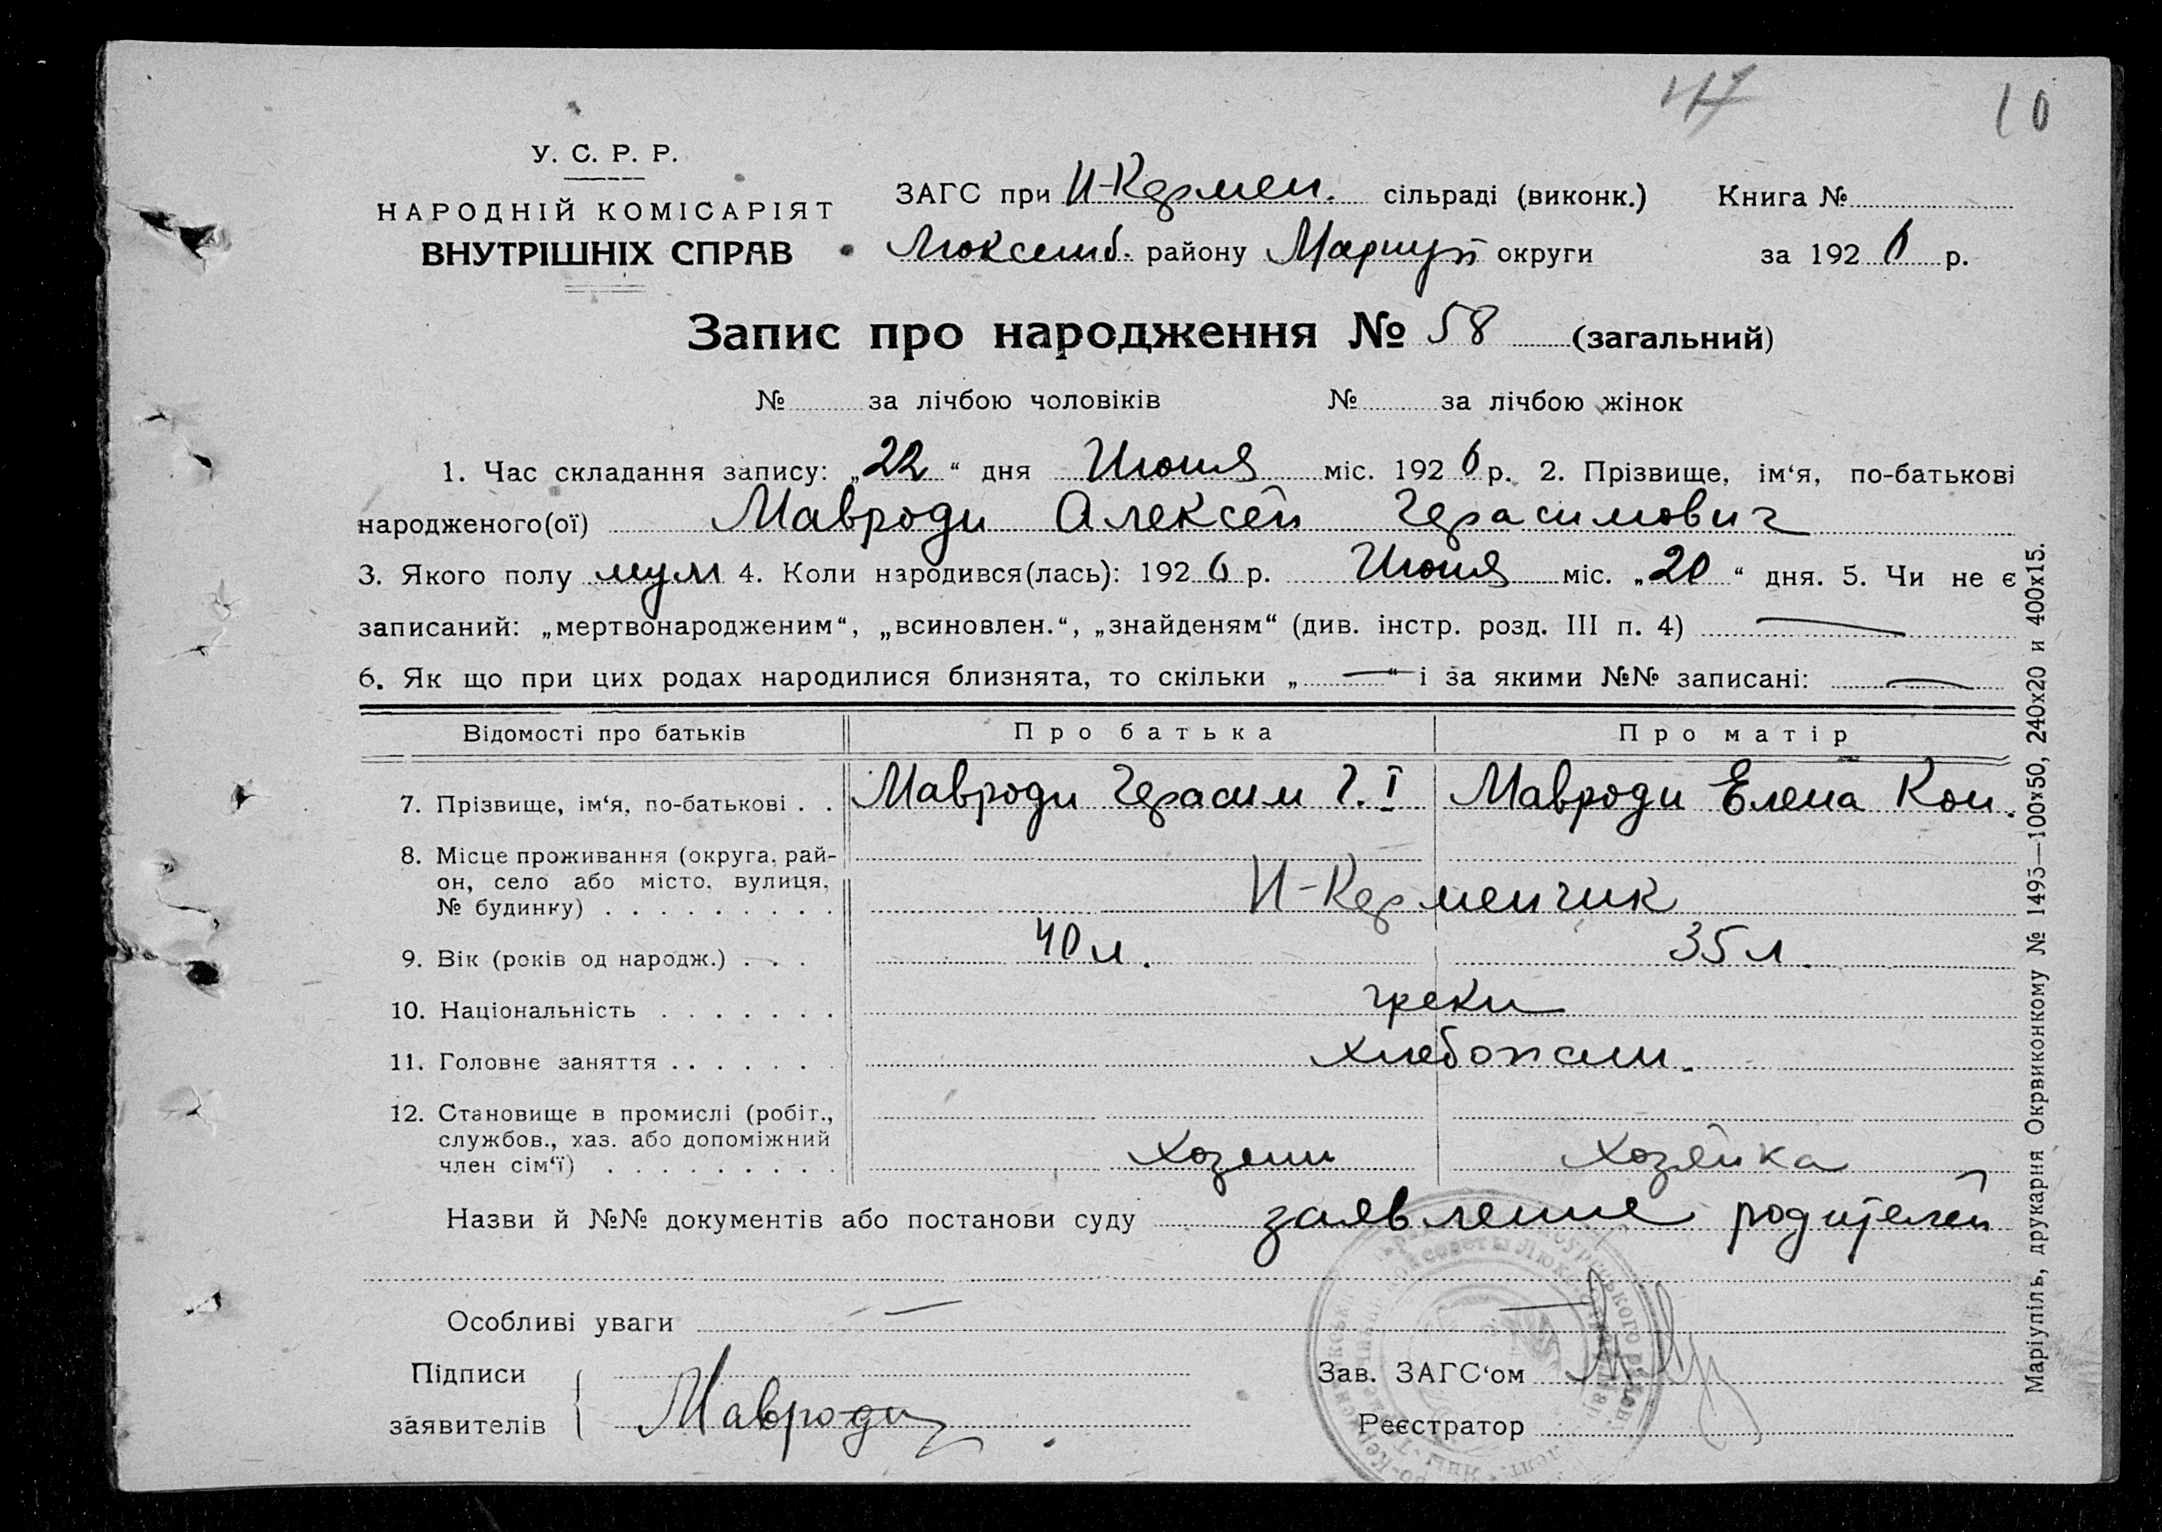 10
У. С. Р. Р.
НАРОДНІЙ КОМІСАРІЯТ
ВНУТРІШНІХ СПРАВ
ЗАГС при И-Кермен. сільраді (виконк.) Книга №
Люксемб. району Мариуп округи за 192 6 р.
Запис про народження № 58 (загальний)
№ за лічбою чоловіків № за лічбою жінок
1. Час складання запису: „22“ дня Июня міс. 1926 р. 2. Прізвище, ім‘я, по-батькові
народженого(ої) Мавроди Алексей Герасимович
3. Якого полу муж 4. Коли народився(лась): 1926 р. Июня міс. „20“ дня. 5. Чи не є
записаний: „мертвонародженим“, „всиновлен.“, „знайденям“ (див. інстр. розд. III п. 4) —
6. Як що при цих родах народилися близнята, то скільки „—“ і за якими №№ записані: —
Відомості про батьків Про батька Про матір
7. Прізвище, ім‘я, по-батькові . . Мавроди Герасим Г. I Мавроди Елена Кон.
8. Місце проживання (округа, рай-
он, село або місто, вулиця,
№ будинку) . . . . . . . . . И-Керменчик
9. Вік (років од народж.) . . . 40 л. 35 л.
10. Національність . . . . . . . греки
11. Головне заняття . . . . . . . хлебопаш.
12. Становище в промислі (робіт.,
службов., хаз. або допоміжний
член сім‘ї) . . . . . . . . . хозяин хозяйка
Назви й №№ документів або постанови суду заявление родителей
Особливі уваги — —
Підписи
заявителів Мавроди
Зав. ЗАГС‘ом
Реєстратор
Маріупіль, друкарня Окрвиконкому № 1495—100х50, 240х20 и 400х15.